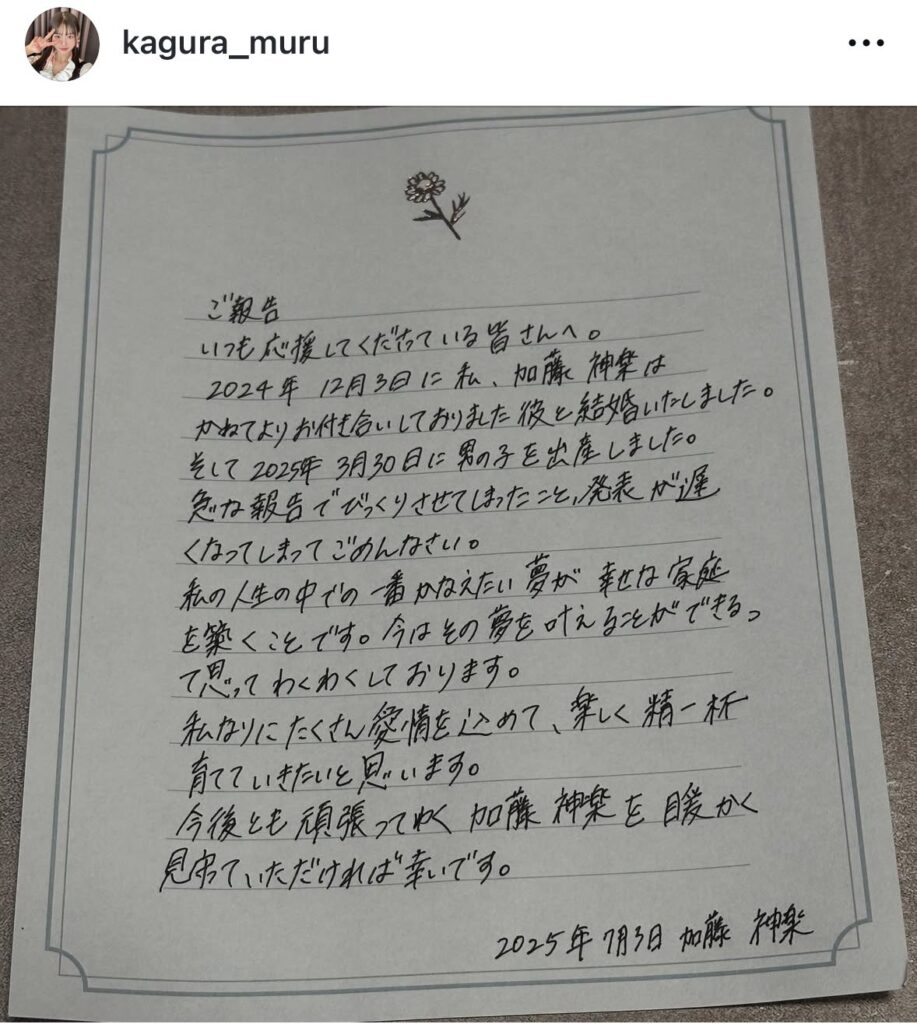 kagura_muru
ご報告
いつも応援してくださっている皆さんへ。
2024年 12月3日に私、加藤 神楽は
かねてよりお付き合いしておりました彼と結婚いたしました。
そして 2025年 3月30日に男の子を出産しました。
急な報告でびっくりさせてしまったこと、発表が遅
くなってしまってごめんなさい。
私の人生の中での一番かなえたい夢が 幸せな家庭
を築くことです。今はその夢を叶えることができるっ
て思ってわくわくしております。
私なりにたくさん愛情を込めて、楽しく精一杯
育てていきたいと思います。
今後とも頑張ってゆく 加藤 神楽を 暖かく
見守っていただければ幸いです。
2025年 7月3日 加藤 神楽